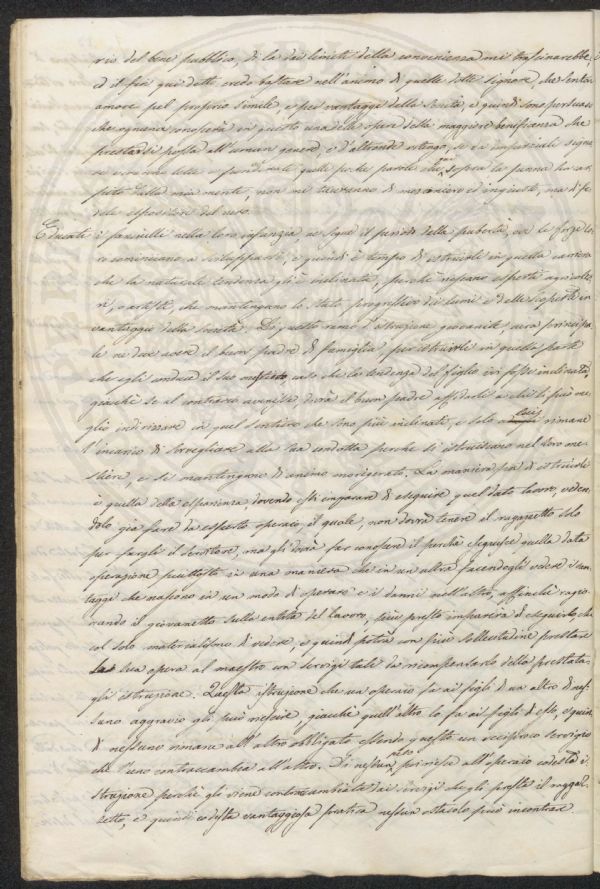 rio del bene pubblico, di la dai limiti della convenienza mi trasinarebbe,
ed il fin qui detto credo bastare nell'animo di quelle dotte signore, che sentano
amore pel proprio simile, e pei vantaggi della Società, e quindi sono persuaso
che ognuna conoscerà in questo una delle opere della maggiore benificenza che
prestarsi possa all'uman genere, e d'altronde ritengo, se da imparziali signo-
re verranno lette e ponderate quelle poche parole che sopra la penna ha
della mia mente, non mi taceranno di menzoniero ed ingiusto, ma di fe-
dele espositore del vero.
Educati i fanciulli nella loro infanzia, ne segue il periodo della pubertà, ove le forze lo-
ro cominciano a svilupparsi, e quindi è tempo di istruirli in quella carriera
che la naturale tendenza gli è inclinata, perché riescano esperti agricolto-
ri, o artisti, che mantengano lo stato progressivo dei lumi e delle scoperte in
vantaggio della società. Di questo ramo d'istruzione giovanile, cura principa-
le ne deve avere il buon padre di famiglia, per istruirli in quella parte
che egli conduce il suo mestiero, caso che la tendenza del figlio ivi fosse inclinata,
giacché se al contrario avenisse dovrà il buon padre affidarli a chi li può me-
glio indirizzare in quel sentiero che sono più inclinati, e solo a lui rimane
l'incarico di sorvegliare alla sua condotta perche si istruiscano nel loro me-
stiere, e si mantengano di animo morigerato. La maniera poi di istruirli
è quella della esperienza, dovendo essi imparare di eseguire quel dato lavoro, veden-
dolo già fare da esperto operaio, il quale, non dovrà tenere il ragazzetto solo
per fargli il servitore, ma gli dovrà far conoscere il perchè eseguisce quella data
operazione piuttosto in una maniera che in un'altra facendogli vedere i van-
taggi che nascono in un modo di operare e i danni nell'altro, affinchè ragio-
nando il giovanetto sulla entità del lavoro, più presto imparerà di eseguirlo che
col solo materialismo di vedere, e quindi potrà con più sollecitudine prestare
la sua opera al maestro con servigi tale da ricompensarlo della prestata-
gli istruzione. Questa istruzione che un operaio fa ai figli di un altro di nes-
suno aggravio gli può riescire, giacchè quell'altro lo fa ai figli di esso, e quin-
di nessuno rimane all'altro obbligato essendo questo un reciproco servigio
che l'uno contraccambia all'altro. Di nessun peso poi riesce all'operaio codesta i-
struzione perchè gli viene contracambiata dai servizi che gli presta il ragaz-
zetto, e quindi codesta vantaggiosa pratica nessun ostacolo può incontrare